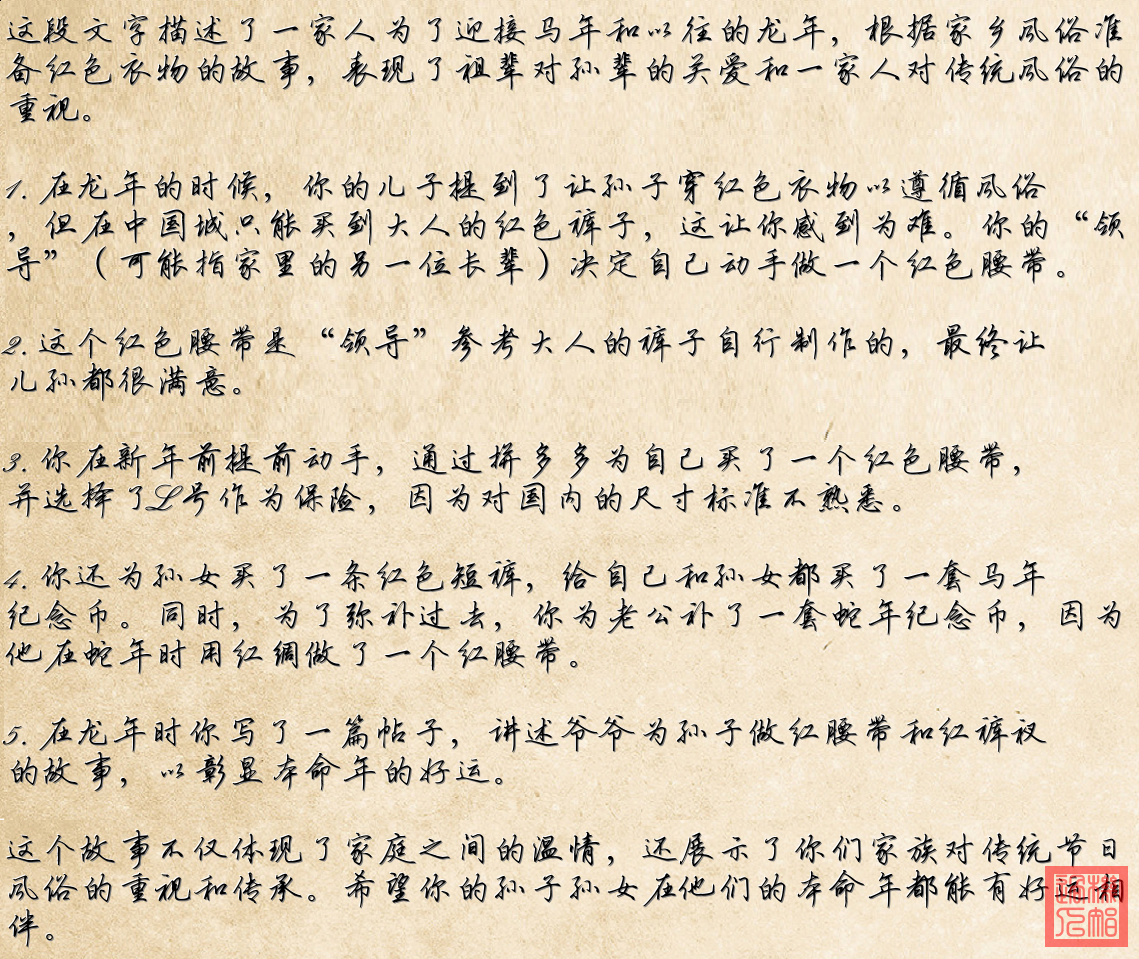 这段文字描述了一家人为了迎接马年和以往的龙年，根据家乡风俗准
备红色衣物的故事，表现了祖辈对孙辈的关爱和一家人对传统风俗的
重视。
1. 在龙年的时候，你的儿子提到了让孙子穿红色衣物以遵循风俗
，但在中国城只能买到大人的红色裤子，这让你感到为难。你的“领
导”（可能指家里的另一位长辈）决定自己动手做一个红色腰带。
2. 这个红色腰带是“领导”参考大人的裤子自行制作的，最终让
儿孙都很满意。
3. 你在新年前提前动手，通过拼多多为自己买了一个红色腰带，
并选择了L号作为保险，因为对国内的尺寸标准不熟悉。
4. 你还为孙女买了一条红色短裤，给自己和孙女都买了一套马年
纪念币。同时，为了弥补过去，你为老公补了一套蛇年纪念币，因为
他在蛇年时用红绸做了一个红腰带。
5. 在龙年时你写了一篇帖子，讲述爷爷为孙子做红腰带和红裤衩
的故事，以彰显本命年的好运。
这个故事不仅体现了家庭之间的温情，还展示了你们家族对传统节日
风俗的重视和传承。希望你的孙子孙女在他们的本命年都能有好运相
伴。